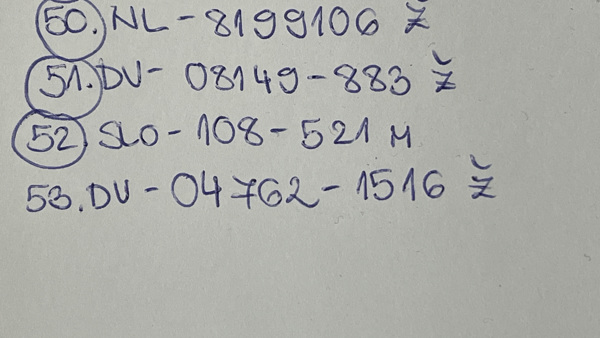 50. NL - 8199106 Ž
51. DV - 08149 - 883 Ž
52 SLO - 108 - 521 M
53. DV - 04762 - 1516 Ž